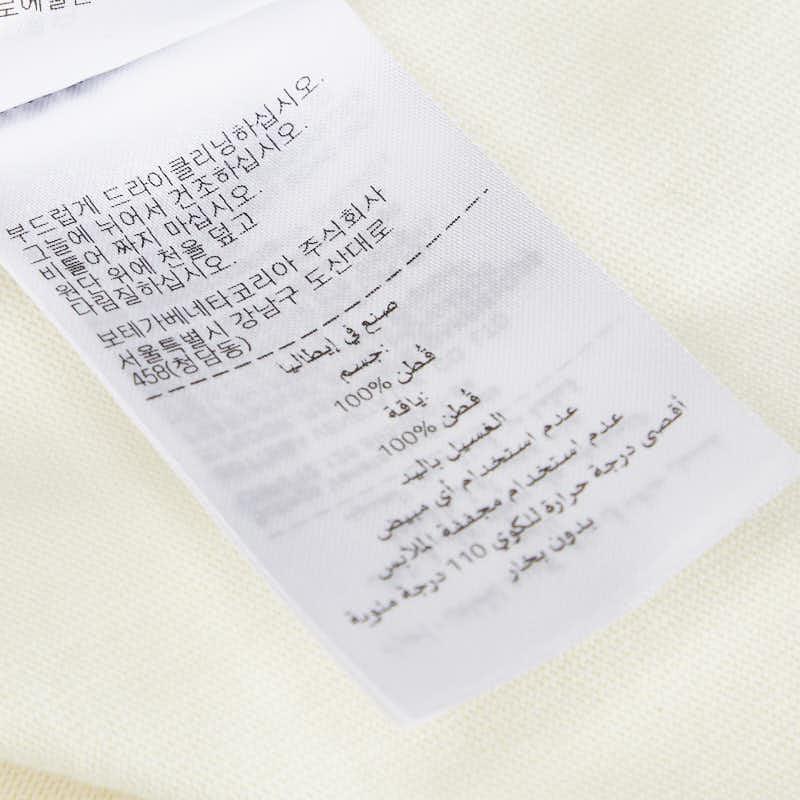 부드럽게 드라이클리닝하십시오.
그늘에 뉘어서 건조하십시오.
비틀어 짜지 마십시오.
원단 위에 천을 덮고
다림질하십시오.
보테가베네타코리아 주식회사
서울특별시 강남구 도산대로
458(청담동)
صنع في إيطاليا
جسم:
100% قُطن
ياقة:
100% قُطن
الغسيل باليد
عدم استخدام أي مبيض
عدم استخدام مجففة الملابس
أقصى درجة حرارة للكوي 110 درجة مئوية
بدون بخار